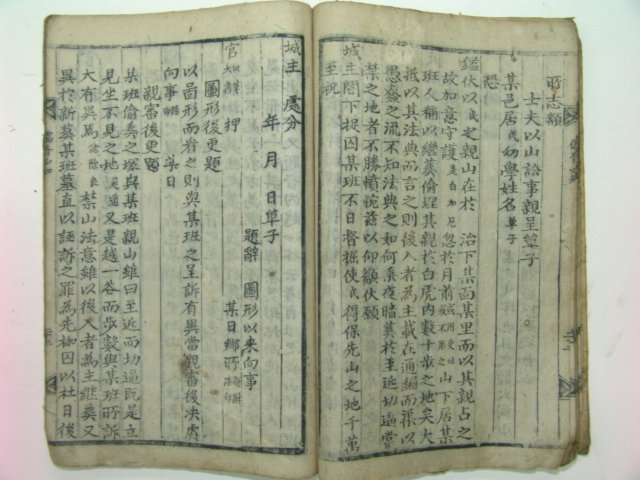 所志類
士夫以山訟事親呈單子
某邑居民幼學姓名單子
恐
鑑伏以民之親山在於 治下某面某里而以其親占之
故加意守護是白加尼 忽於月前 山下居某
班人稱以繼葬偸埋其親於白虎內數十步之地矣大
抵以其法典而言之則後入者為主載在通編而渠以
愚蠢之流不知法典之如何乘夜暗葬於至近切逼當
禁之地者不勝憤惋玆以仰籲伏願
城主閤下捉囚某班不日督掘使民得保先山之地千萬
至祝
城主 處分
年 月 日單子
題辭 圖形以來向事
官 押 某日鄉所
圖形後更題
以圖形而看之則與某班之呈訴有異當親審後決處
向事 某日
親審後更題
某班偸葬之塚與某班親山雖曰至近而切逼旣是立
見坐不見之地 又是越一谷而步數與某班所訴
大有異焉 禁山法意雖以後入者為主繼葬又
異於新葬某班墓直以誣訴之罪為先枷囚以杜日後